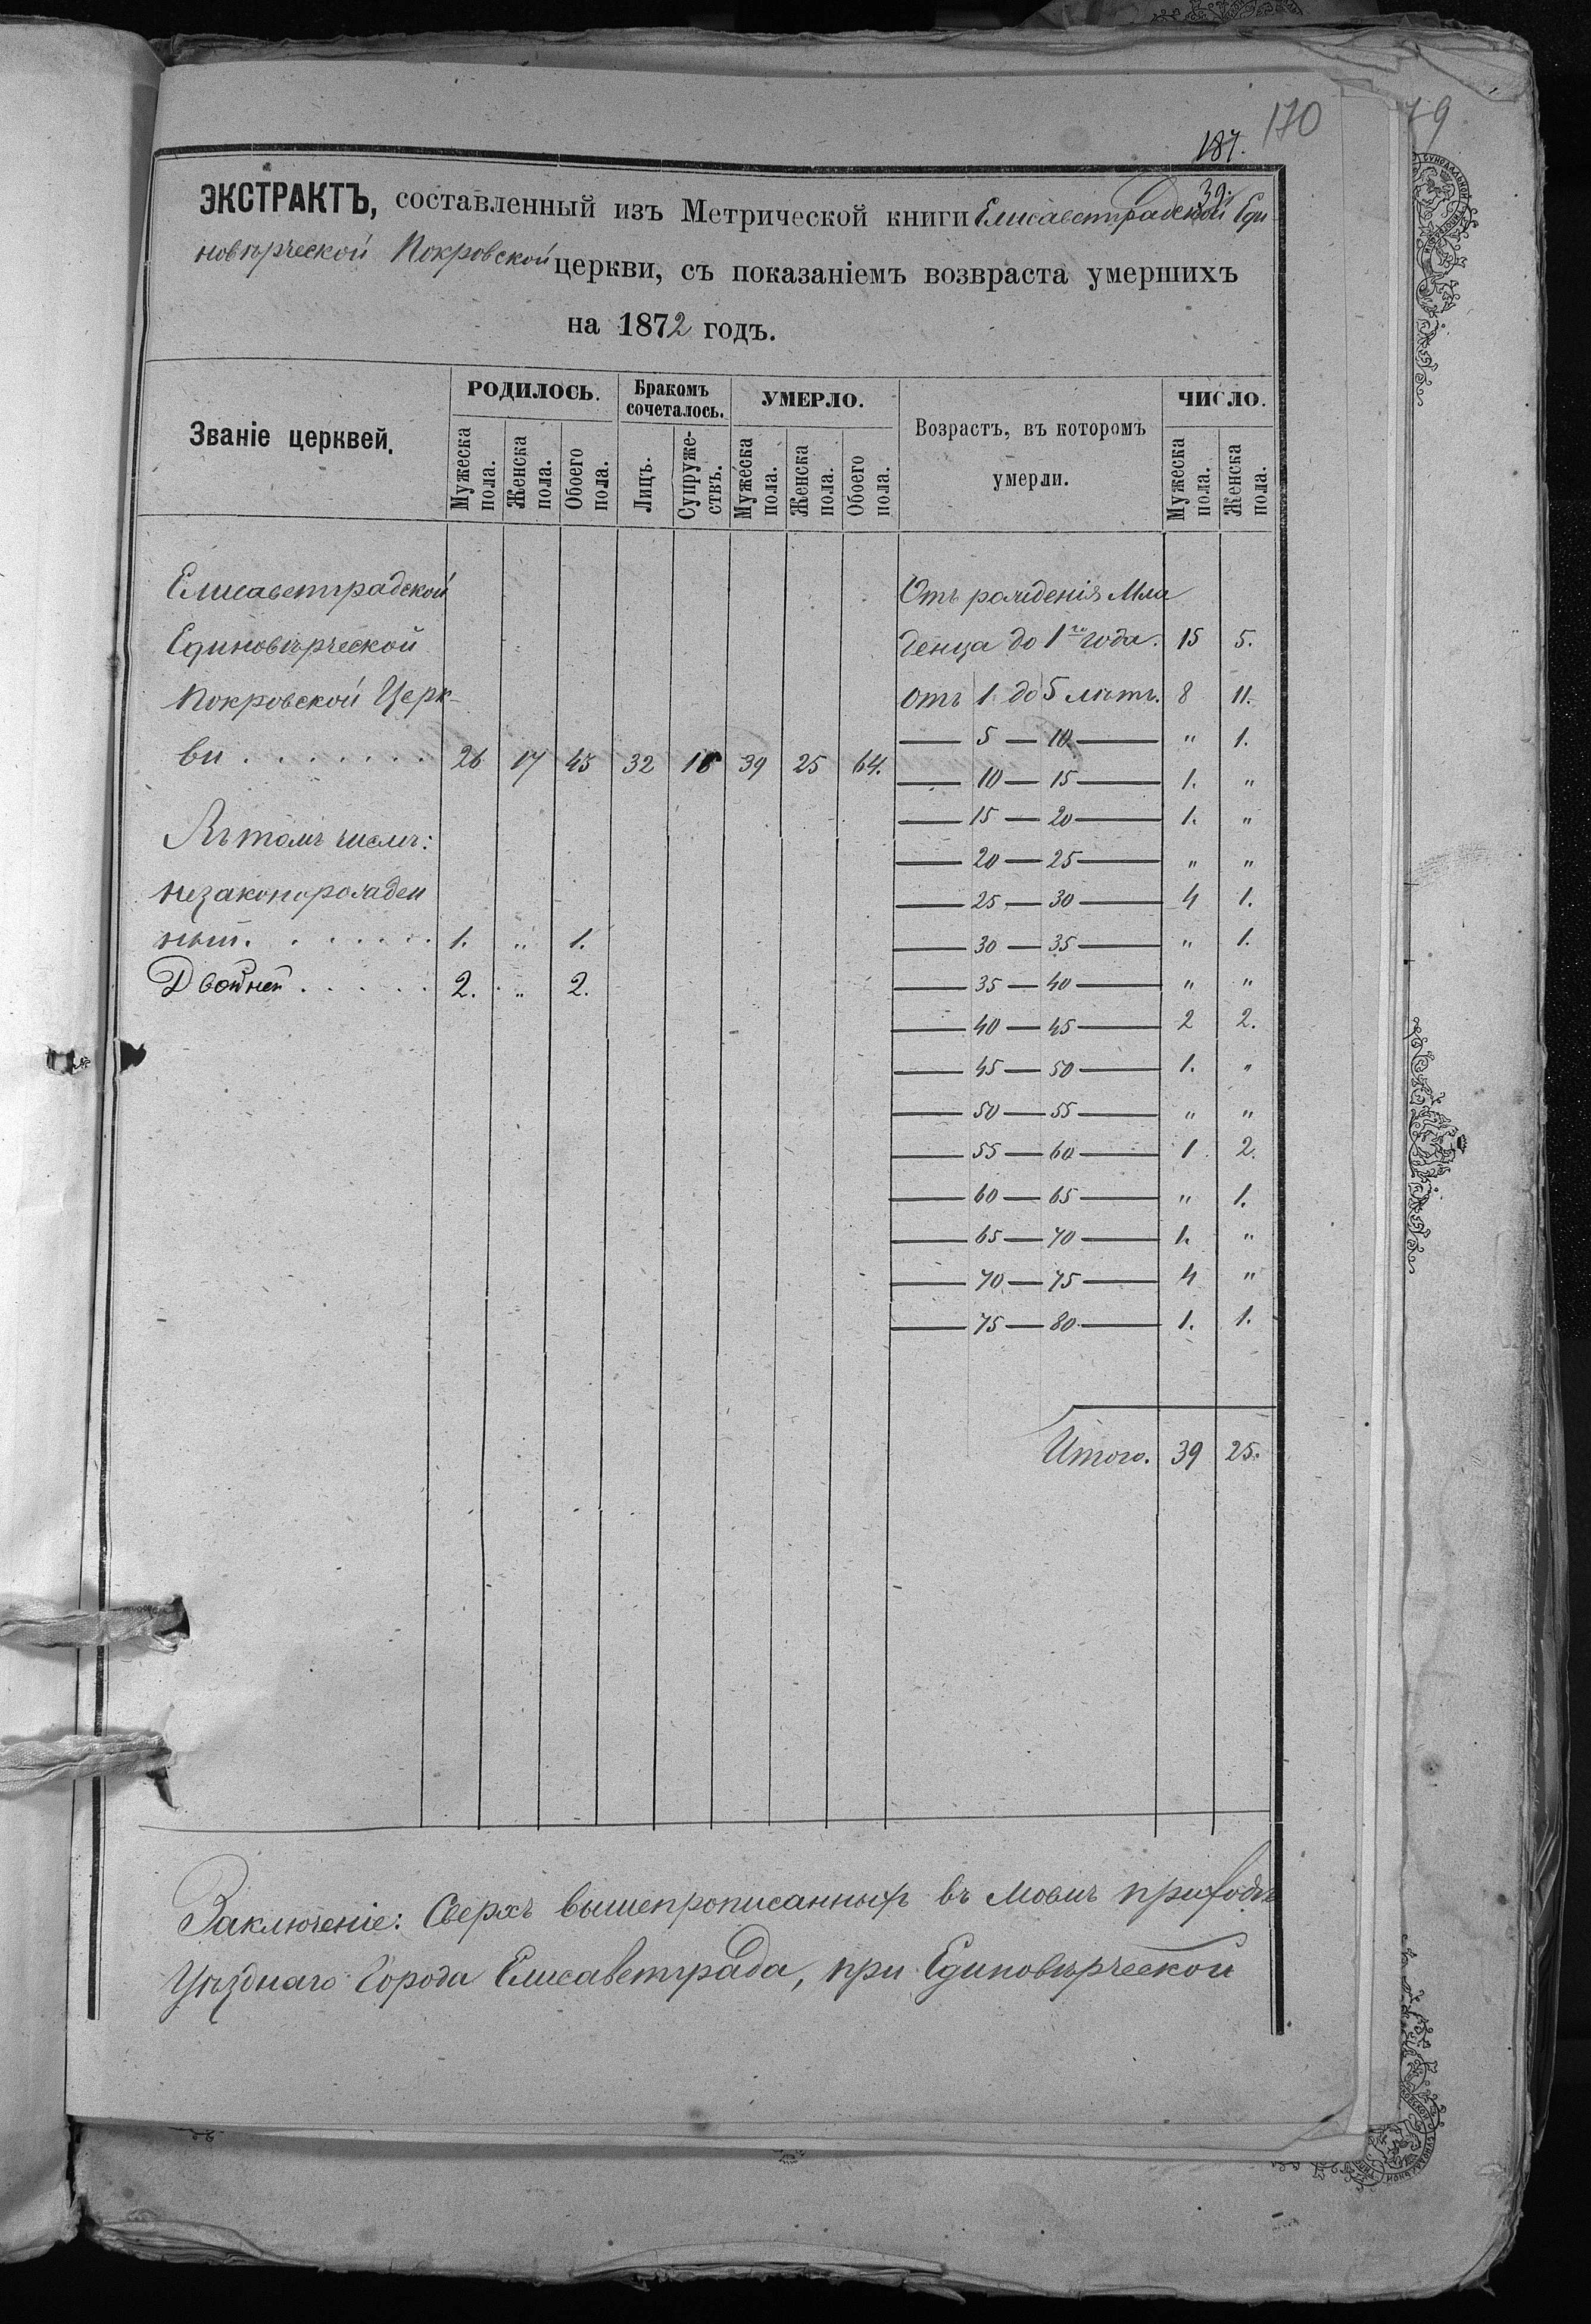 170
79
187.
39.
ЭКСТРАКТЪ, составленный изъ Метрической книги Елисаветградской Еди
новѣрческой Покровской церкви, съ показаніемъ возвраста умершихъ
на 1872 годъ.
Званіе церквей.
РОДИЛОСЬ.
Бракомъ сочеталось.
УМЕРЛО.
Возрастъ, въ которомъ умерли.
ЧИСЛО.
Мужеска пола.
Женска пола.
Обоего пола.
Лицъ.
Супруже-ствъ.
Мужеска пола.
Женска пола.
Обоего пола.
Мужеска пола.
Женска пола.
Елисаветградской
Единовѣрческой
Покровской Церк-
ви . . . . . . . 26 17 43 32 16 39 25 64.
Въ томъ числѣ:
незаконорожден
ныхъ. . . . . . . 1. " 1.
Двойней . . . . . 2. " 2.
Отъ рожденія Мла
денца до 1го года. 15 5.
Отъ 1. до 5 лѣтъ. 8 11.
— 5 — 10 — " 1.
— 10 — 15 — 1. "
— 15 — 20 — 1. "
— 20 — 25 — " "
— 25 — 30 — 4 1.
— 30 — 35 — " 1.
— 35 — 40 — " "
— 40 — 45 — 2 2.
— 45 — 50 — 1. "
— 50 — 55 — " "
— 55 — 60 — 1 2.
— 60 — 65 — " 1.
— 65 — 70 — 1. "
— 70 — 75 — 4 "
— 75 — 80 — 1. 1.
Итого. 39 25.
Заключеніе: Сверхъ вышепрописанныхъ въ моемъ приходѣ
Уѣзднаго Города Елисаветграда, при Единовѣрческой